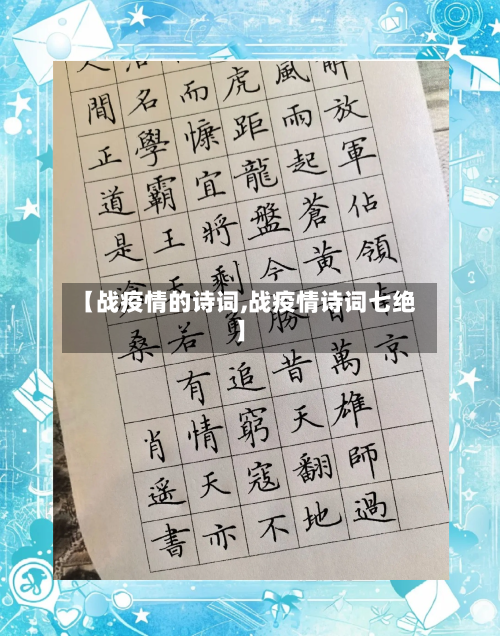 【战疫情的诗词,战疫情诗词七绝
】
解放軍佔領京
風雨起蒼黃萬雄師過
虎距龍盤今勝昔天翻地
而慷宜將剩勇追窮寇不
名學霸王天若有情天亦
間正道是滄桑
肖遥書